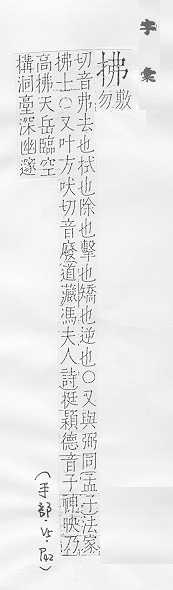 字彙
拂
敷勿
切音弗去也拭也除也擊也矯也逆也○又與弼同孟子法家
拂士○又叶方吠切音廢道藏馮夫人詩挺穎德音子神映乃
高拂天岳臨空
構洞臺深幽邃
(手部.V5.P42)